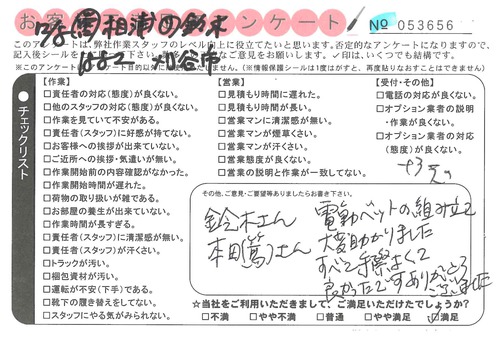 お客 アンケート № 053656
相浦 鈴木
このアンケートは、弊社作業スタッフのレベル向上に役立てたいと思います。否定的なアンケートになりますので、
記入後シールを
をお願いします。✓印は、いくつでも結構です。
※このアンケート 目的以外に
ません。(※情報保護シールは1度はがすと、再度貼りなおすことはできません)
チェックリスト
【作業】
□責任者の対応(態度)が良くない。
□他のスタッフの対応(態度)が良くない。
□作業を見ていて不安がある。
□責任者(スタッフ)に好感が持てない。
□お客様への挨拶が出来ていない。
□ご近所への挨拶・気遣いが無い。
□作業開始前の内容確認がなかった。
□作業開始時間が遅れた。
□荷物の取り扱いが雑である。
□お部屋の養生が出来ていない。
□作業時間が長すぎる。
□責任者(スタッフ)に清潔感が無い。
□責任者(スタッフ)が汗くさい。
□トラックが汚い。
□梱包資材が汚い。
□運転が不安(下手)である。
□靴下の履き替えをしてない。
□スタッフにやる気がみられない。
【営業】
□見積もり時間に遅れた。
□見積もり時間が長い。
□営業マンに清潔感が無い。
□営業マンが煙草くさい。
□営業マンが汗くさい。
□営業態度が良くない。
□営業の説明と作業が一致してない。
【受付・その他】
□電話の対応が良くない。
□オプション業者の説明
・作業が良くない。
□オプション業者の対応
(態度)が良くない。
その他、ご意見・ご要望等ありましたらお書き下さい。
鈴木さん
本田(篤)さん
電動ベットの組み立て
大変助かりました
すべて手際よくて
良かったですありがとう
ございました
☆当社をご利用いただきまして、ご満足いただけたでしょうか?
□不満 □やや不満 □普通 □やや満足 ☑満足